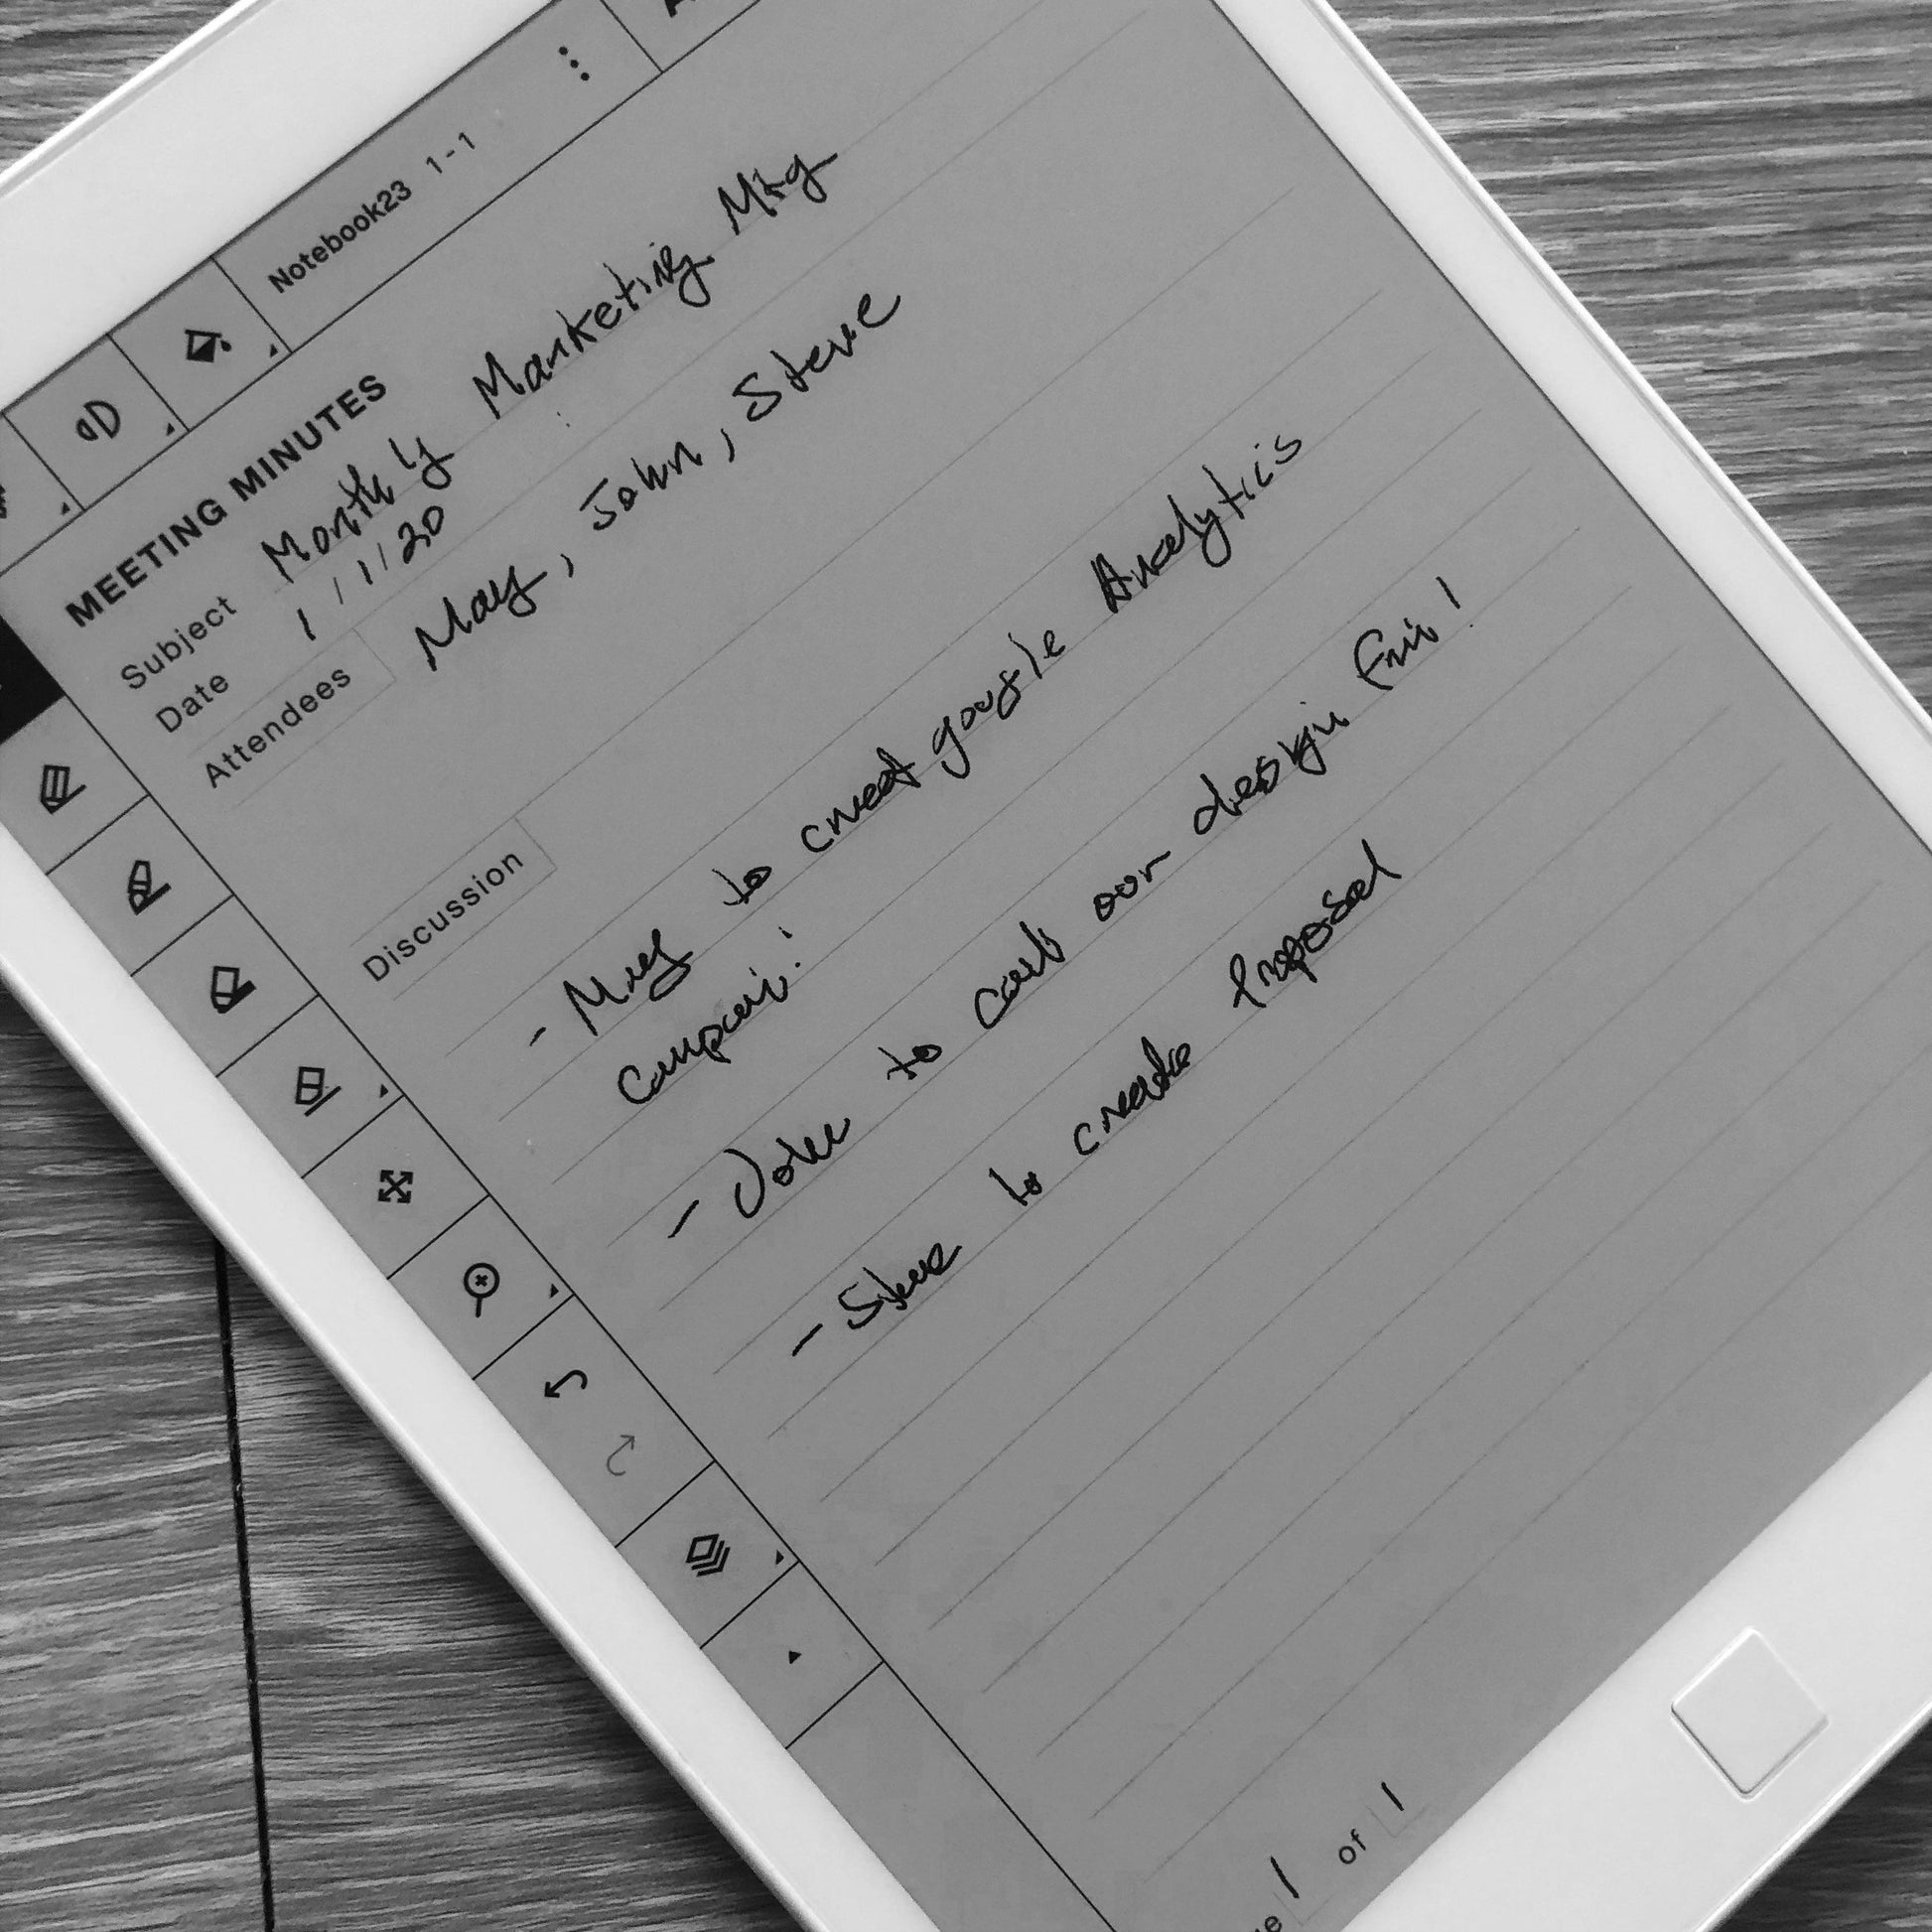 Notebook23 1-1
MEETING MINUTES
Subject Monthly Marketing Mtg
Date 1/1/20
Attendees May, John, Steve
Discussion
- May to creat google Analytics
- John to call our design
- Steve to create Proposal
1 of 1